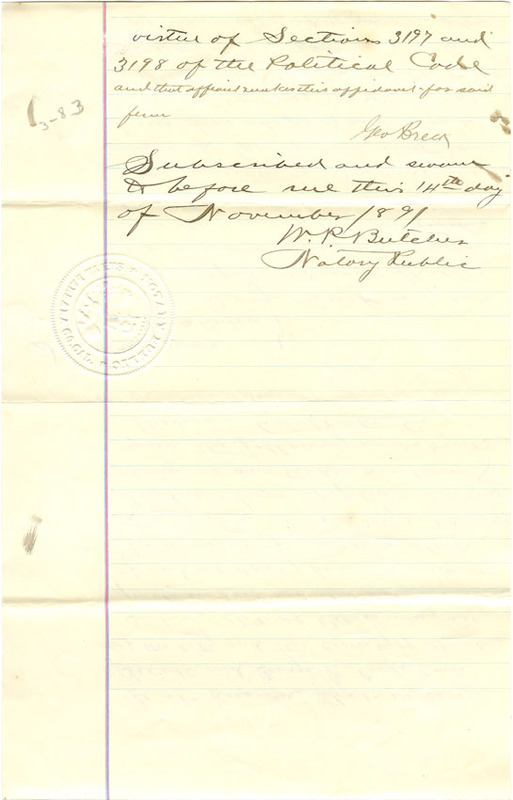 virtue of Sections 3197 and
3198 of the Political Code
and that affiant makes this affidavit for said
firm
3-83
Geo Breck
Subscribed and sworn
to before me this 14th day
of November 1891
W. P. Butcher
Notary Public